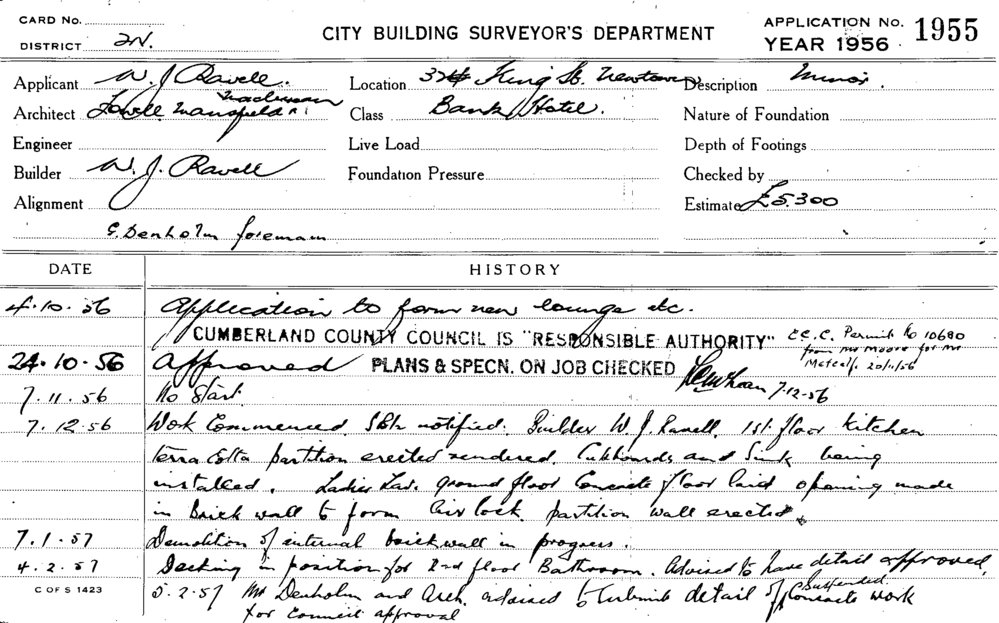 CARD No.
DISTRICT 2N.
CITY BUILDING SURVEYOR'S DEPARTMENT
APPLICATION No. 1955
YEAR 1956
Applicant W. J Ravell. Location King St. Newtown Description Minor.
Architect Mansfield Class Bank/Hotel. Nature of Foundation
Engineer Live Load Depth of Footings
Builder W. J. Ravell Foundation Pressure Checked by
Alignment Estimate £5.300
E. Denholm foreman
DATE HISTORY
4.10.56 Application to form new lounge etc.
CUMBERLAND COUNTY COUNCIL IS "RESPONSIBLE AUTHORITY" C.C.C. Permit No 10680
from Mr Moore for Mr
Metcalf. 20/11/56
24.10.56 Approved PLANS & SPECN. ON JOB CHECKED 7-12-56
7.11.56 No Start.
7.12.56 Work Commenced. notified. Builder W J. Ravell. 1st floor Kitchen
terra Cotta partition erected rendered. Cupboards and Sink being
installed. Ladies Lav. ground floor Concrete floor laid opening made
in Brick wall to form Air lock. partition wall erected
7.1.57 Demolition of internal brick wall in progress.
4.2.57 Decking in position for 2nd floor Bathroom. Advised to have detail approved.
5.2.57 Mr Denholm and Arch. advised to submit detail of Suspended Concrete work
for Council approval
C OF S 1423